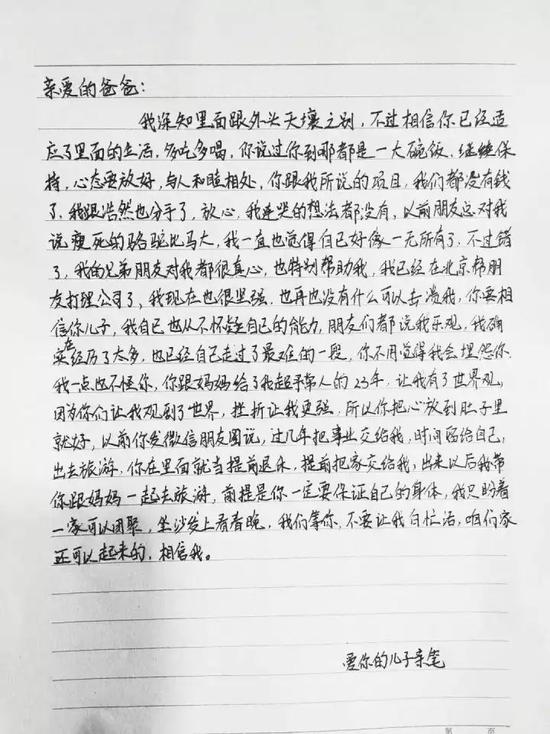 亲爱的爸爸：
我深知里面跟外头天壤之别，不过相信你已经适
应了里面的生活，多吃多喝，你说过你到哪都是一大碗饭，继续保
持，心态要放好，与人和睦相处，你跟我所说的项目，我们都没有钱
了，我跟浩然也分手了，放心，我连哭的想法都没有，以前朋友总对我
说瘦死的骆驼比马大，我一直也觉得自己好像一无所有了，不过错
了，我的兄弟朋友对我都很真心，也特别帮助我，我已经在北京帮朋
友打理公司了，我现在也很坚强，也再也没有什么可以击溃我，你要相
信你儿子，我自己也从不怀疑自己的能力，朋友们都说我乐观，我确
实经历了太多，也已经自己走过了最难的一段，你不用觉得我会埋怨你
我一点也不怪你，你跟妈妈给了我超乎常人的23年，让我有了世界观，
因为你们让我观到了世界，挫折让我更强，所以你把心放到肚子里
就好，以前你发微信朋友圈说，过几年把事业交给我，时间留给自己，
出去旅游，你在里面就当提前退休，提前把家交给我，出来以后我带
你跟妈妈一起去旅游，前提是你一定要保证自己的身体，我只盼着
一家可以团聚，坐沙发上看春晚，我们等你，不要让我白忙活，咱们家
还可以起来的，相信我。
爱你的儿子亲笔
第 页